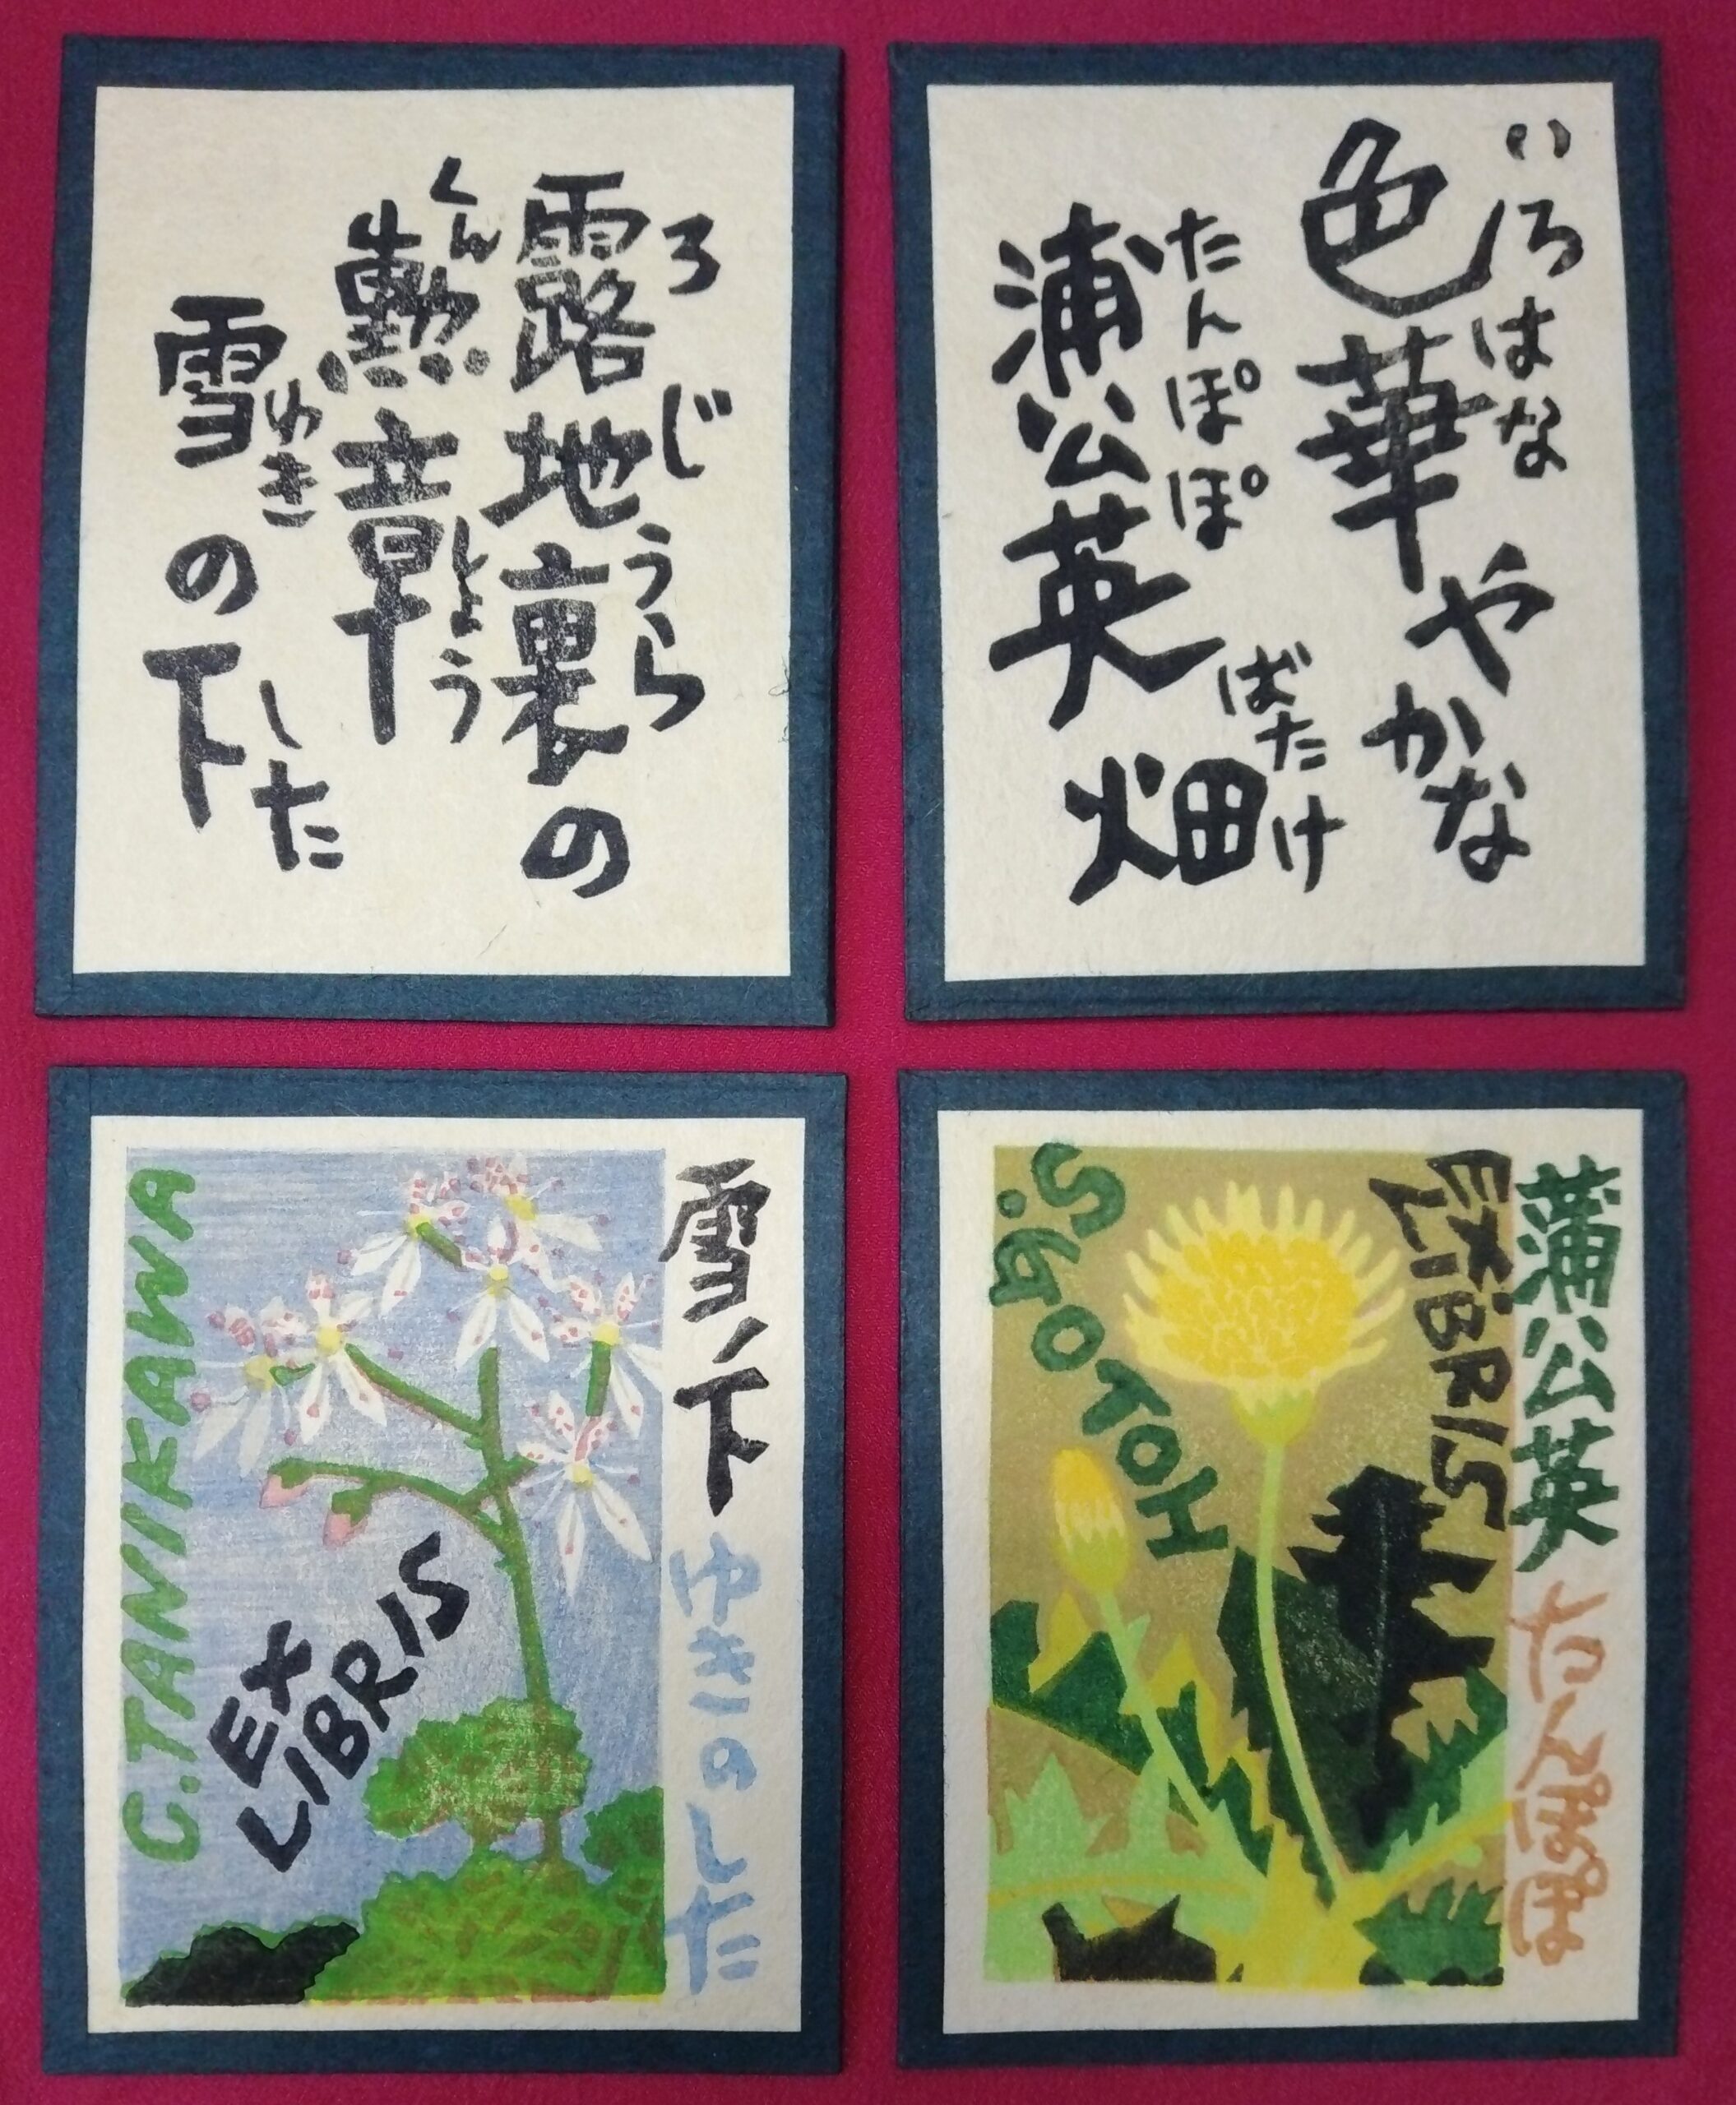 ろじうら
露地裏の
くんしょう
勲章
ゆき した
雪の下
いろはな
色華やかな
たんぽぽ ばたけ
浦公英畑
雪ノ下 ゆきのした
C.TANIKAWA
EX
LIBRIS
蒲公英 たんぽぽ
EX
LIBRIS
S.GOTOH